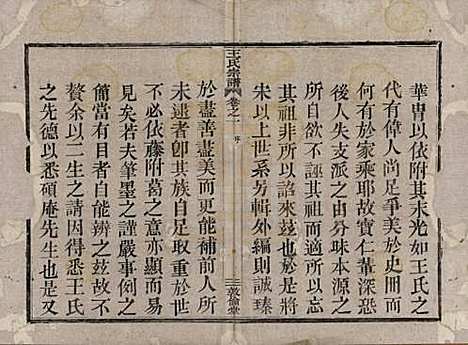 華冑以依附其末光如王氏之
代有偉人尚足爭美於史冊而
何有於家乘耶故寶仁輩深恐
後人失支派之由分昧本源之
所自欲不誣其祖而適所以忘
其祖非所以詒來茲也於是將
宋以上世系另輯外編則誠臻
王氏宗譜
卷之一
序
三
敦倫堂
於盡善盡美而更能補前人所
未逮者卽其族自足取重於世
不必依藤附葛之意亦顯而易
見矣若夫筆墨之謹嚴事業之
備當有目者自能辨之茲故不
贅余以二生之請因得悉王氏
之先德以悉碩庵先生也是又